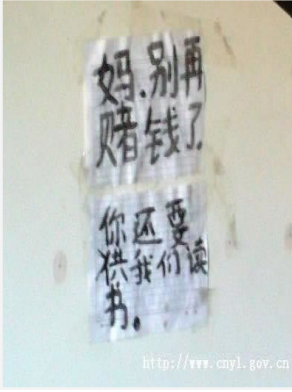 妈.别再
赌钱了.
你还要
供我们读
书。
http://www.cnyl.gov.cn